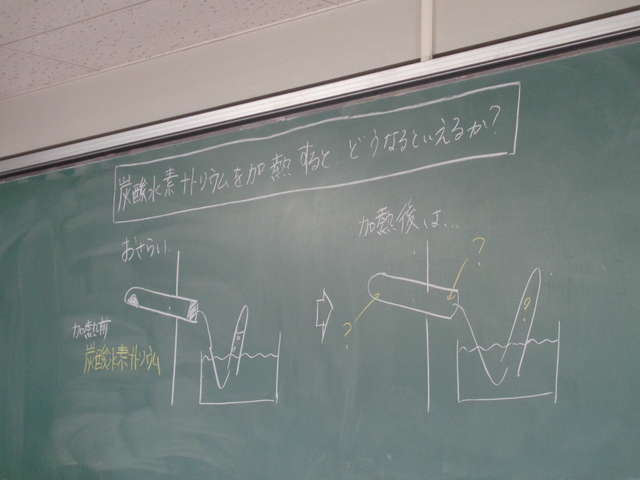 炭酸水素ナトリウムを加熱するとどうなるといえるか?
おさらい
加熱後は…
?
加熱前
炭酸水素ナトリウム
?
?